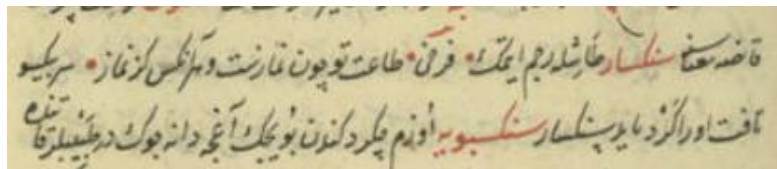 قاضه معناسنه سنکسار طاشله رجم ایتمك فرخی طاعت تو چون نمازست و هر آنکس کز نماز سر بیکسو
تافت او را کرد باید سنکسار سنکسبویه اوزم چکردکندن بویجك آغجه دانه جوك در طبیبلر قاتنده